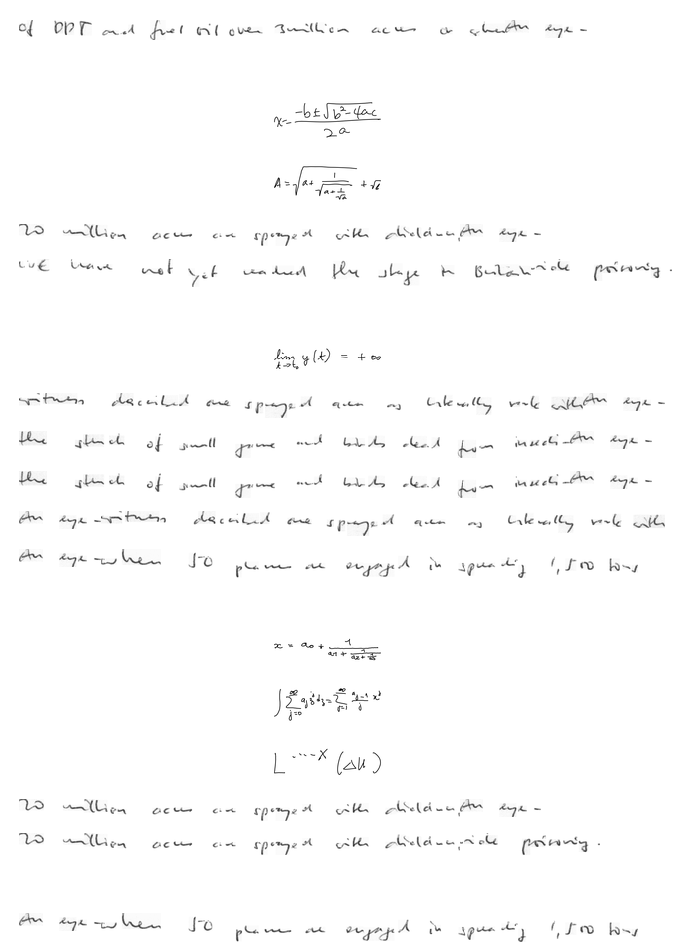 of DDT and fuel oil over 3 million acres or when An eye-
x = \frac{-b ± \sqrt{b^2 - 4ac}}{2a}
A = \sqrt{a + \frac{1}{\sqrt{a + \frac{1}{\sqrt{a}}}}} + \sqrt{b}
20 million acres are sprayed with dieldrin, An eye-
WE have not yet reached the stage in Britain -ide poisoning.
\lim_{t→t_0} y(t) = +∞
witness described one sprayed area as literally rank with An eye-
the stench of small game and birds dead from insecti- An eye-
the stench of small game and birds dead from insecti- An eye-
An eye-witness described one sprayed area as literally rank with
An eye- when 50 planes are engaged in spreading 1,500 tons
x = a_0 + \frac{1}{a_1 + \frac{1}{a_2 + }}
∫ \sum_{j=0}^{∞} a_j z^j dz = \sum_{j=1}^{∞} \frac{a_{j-1}}{j} z^j
L ---- X (Δu)
20 million acres are sprayed with dieldrin, An eye-
20 million acres are sprayed with dieldrin, -ide poisoning.
An eye- when 50 planes are engaged in spreading 1,500 tons